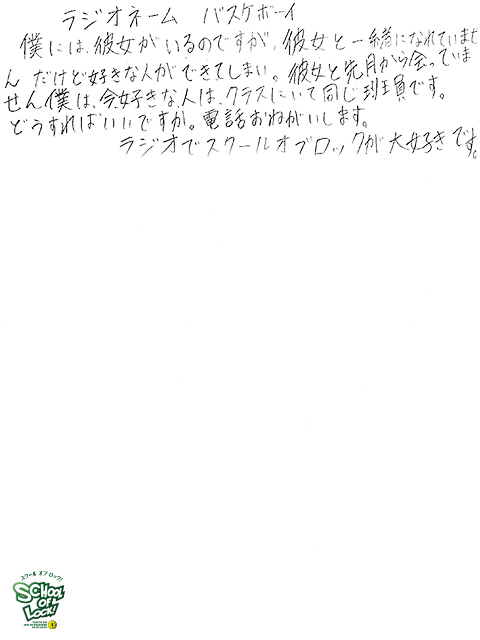 ラジオネーム バスケボーイ
僕には、彼女がいるのですが、彼女と一緒になれていませ
ん だけど好きな人ができてしまい。彼女と先月から会っていま
せん僕は、今好きな人は、クラスにいて同じ班員です。
どうすればいいですか。電話おねがいします。
ラジオでスクールオブロックが大好きです。
スクール オブ ロック!
SCHOOL
OF
LOCK!